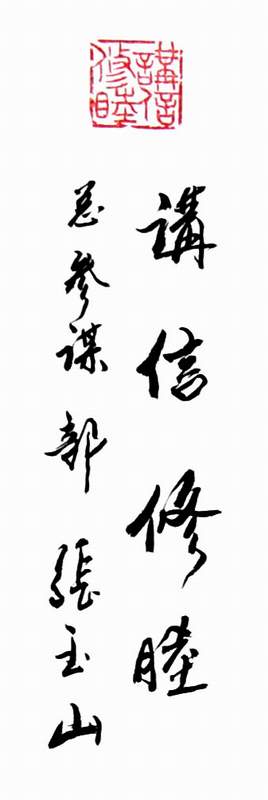 講信修睦
講信修睦
总参谋部 張玉山